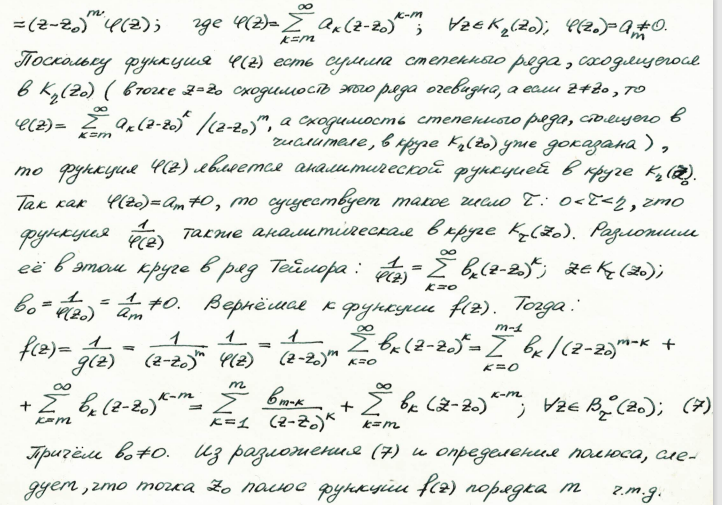 =(z-z₀)ᵐφ(z); где φ(z)=∑_{k=m}^{∞} aₖ(z-z₀)^{k-m}; ∀z∈K₂(z₀); φ(z₀)=aₘ≠0.
Поскольку функция φ(z) есть сумма степенного ряда, сходящегося
в K₂(z₀) ( в точке z=z₀ сходимость этого ряда очевидна, а если z≠z₀, то
φ(z)= ∑_{k=m}^{∞} aₖ(z-z₀)ᵏ/(z-z₀)ᵐ, а сходимость степенного ряда, стоящего в
числителе, в круге K₂(z₀) уже доказана),
то функция φ(z) является аналитической функцией в круге K₂(z₀).
Так как φ(z₀)=aₘ≠0, то существует такое число τ: 0<τ<η, что
функция 1/φ(z) также аналитическая в круге K_τ(z₀). Разложим
её в этом круге в ряд Тейлора: 1/φ(z)=∑_{k=0}^{∞} bₖ(z-z₀)ᵏ; z∈K_τ(z₀);
b₀=1/φ(z₀)=1/aₘ≠0. Вернёмся к функции f(z). Тогда:
f(z)=1/g(z)=1/(z-z₀)ᵐ 1/φ(z)=1/(z-z₀)ᵐ ∑_{k=0}^{∞} bₖ(z-z₀)ᵏ=∑_{k=0}^{m-1} bₖ/(z-z₀)^{m-k} +
+∑_{k=m}^{∞} bₖ(z-z₀)^{k-m}=∑_{k=1}^{m} b_{m-k}/(z-z₀)ᵏ+∑_{k=m}^{∞} bₖ(z-z₀)^{k-m}; ∀z∈B_τ⁰(z₀); (7)
Причём b₀≠0. Из разложения (7) и определения полюса, сле-
дует, что точка z₀ полюс функции f(z) порядка m ч.т.д.